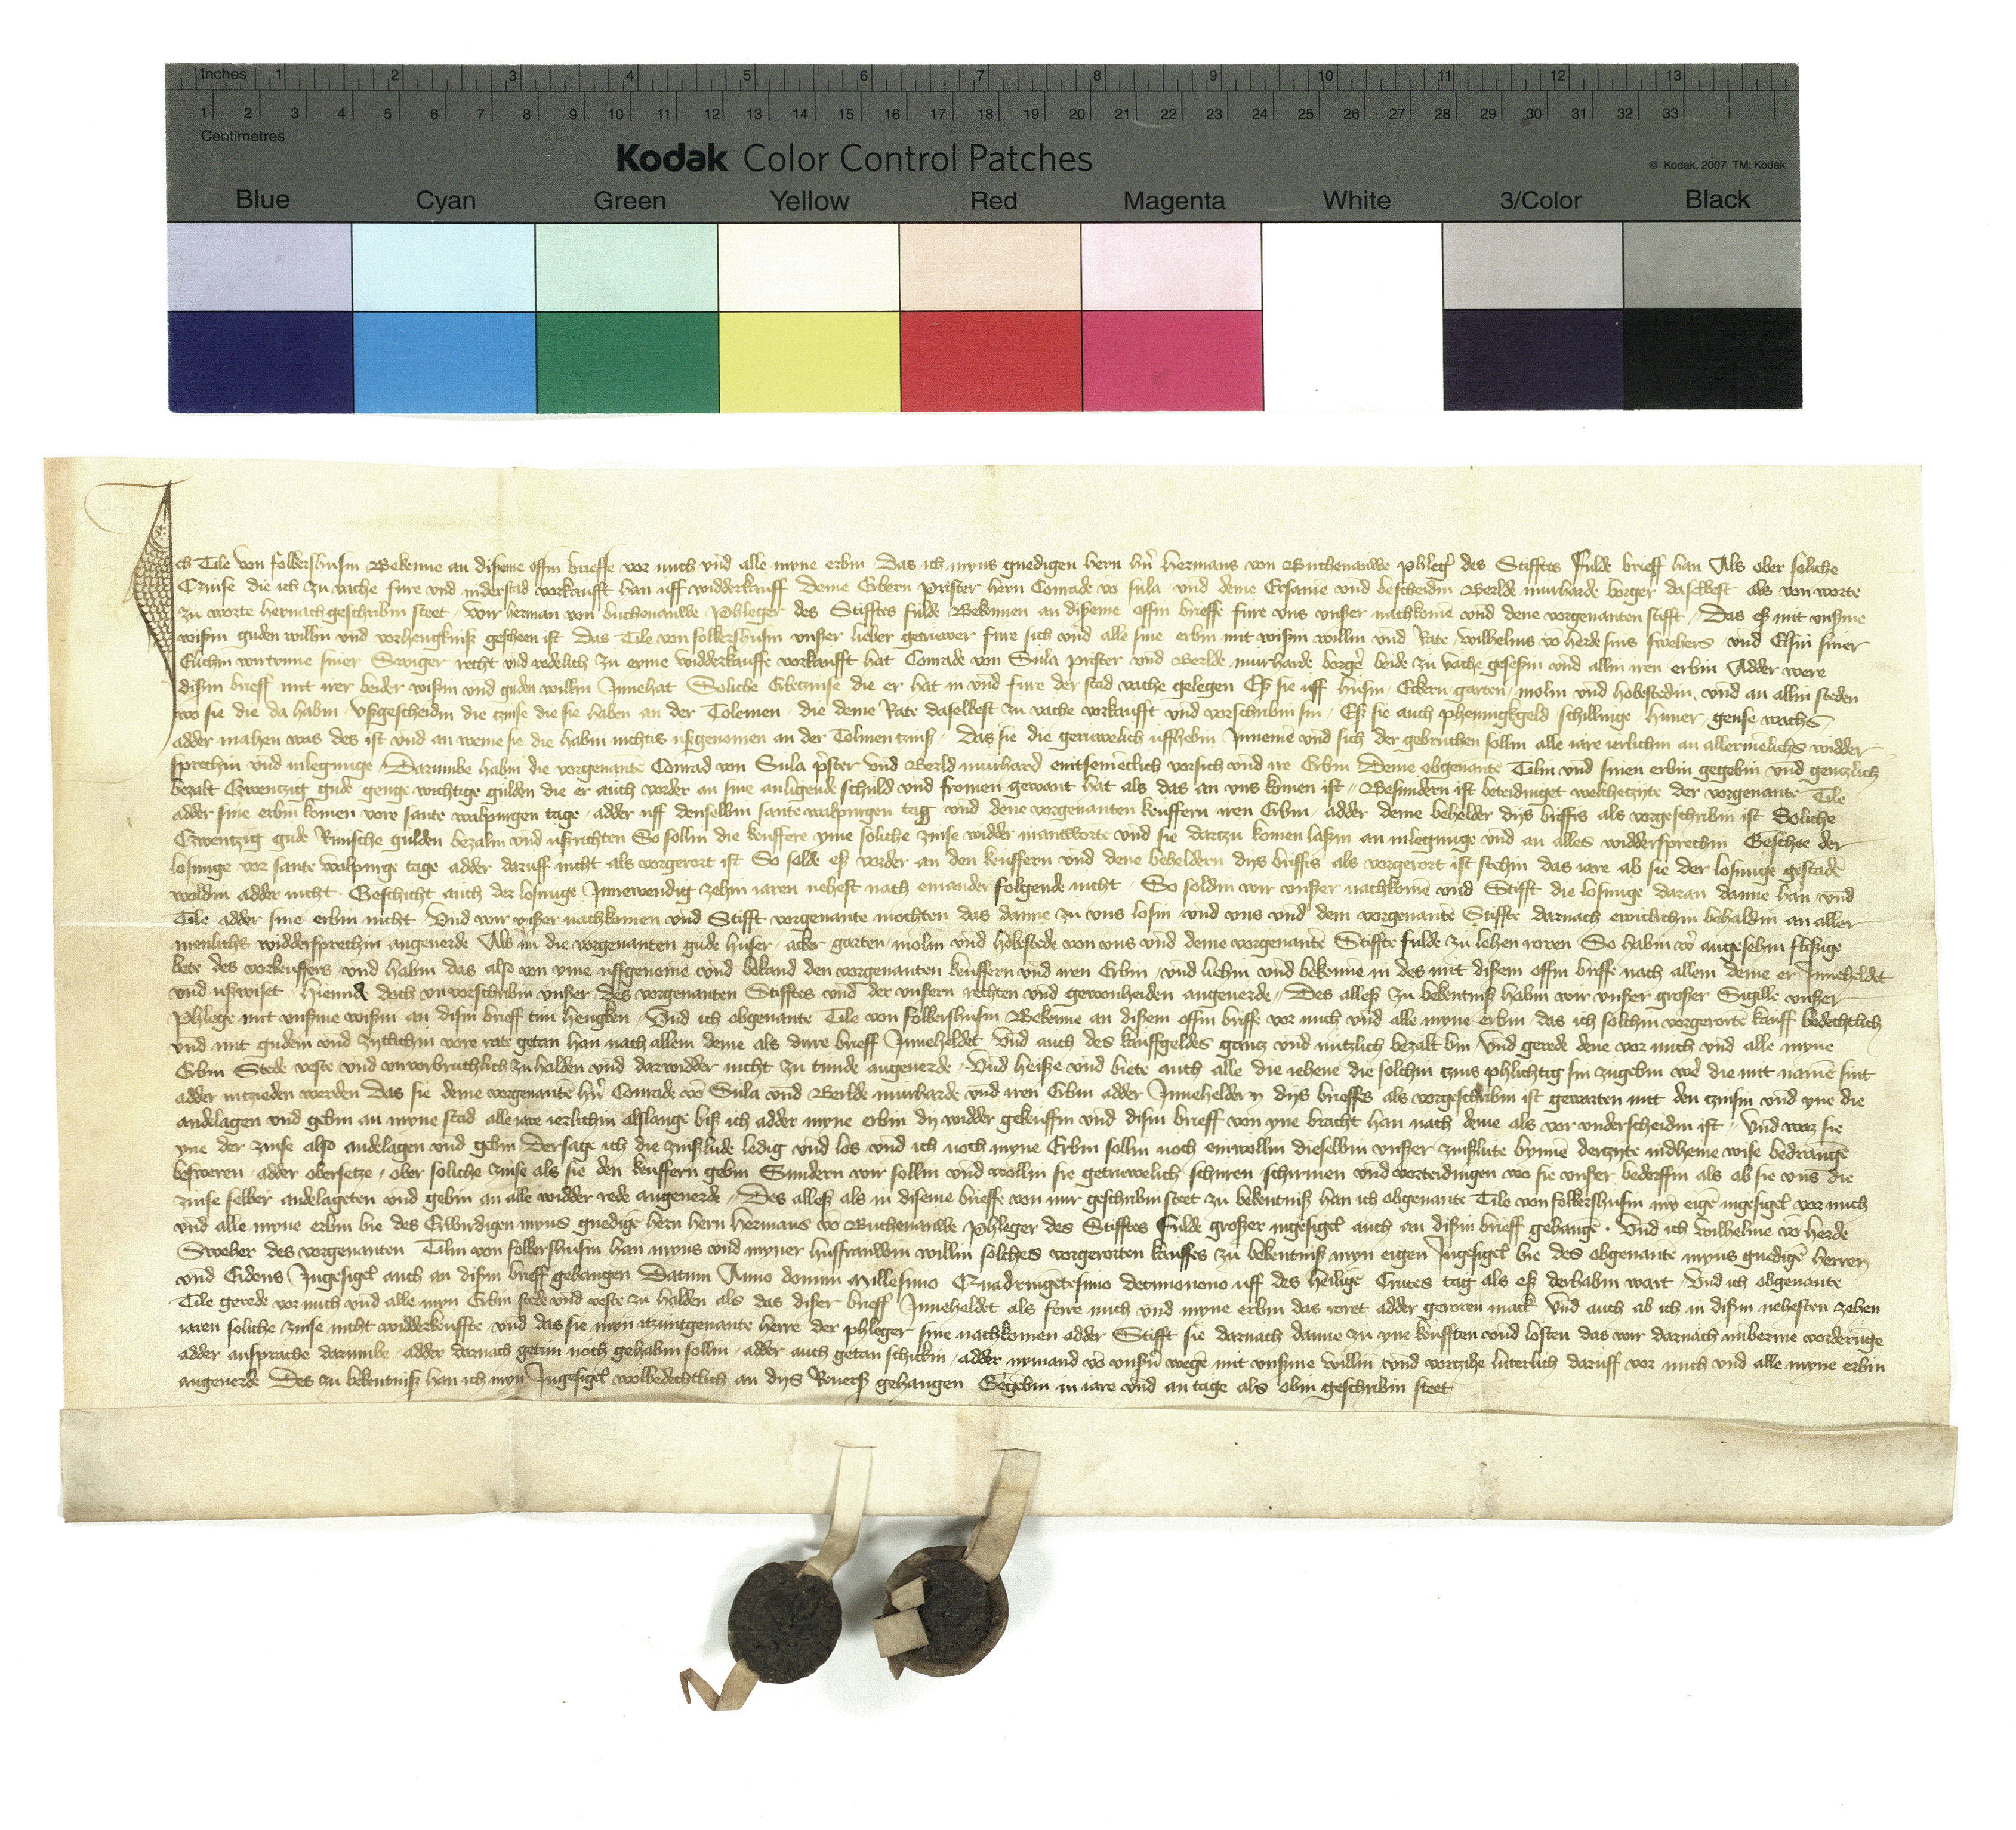 Inches 1 2 3 4 5 6 7 8 9 10 11 12 13
1 2 3 4 5 6 7 8 9 10 11 12 13 14 15 16 17 18 19 20 21 22 23 24 25 26 27 28 29 30 31 32 33
Centimetres
Kodak Color Control Patches
© Kodak, 2007 TM: Kodak
Blue Cyan Green Yellow Red Magenta White 3/Color Black
Ich Tile von folkershusin Bekenne an dißeme offin brieffe vor mich vnd alle myne erbin Das ich myns gnedigen hern hern Hermans von Buchenauwe phleger des Stifftes Fulde brieff han Als ober soliche
Czinse die ich zu vache fure vnd inderstad vorkaufft han uff widderkauff Deme Erbern Prister hern Conrade vo sula vnd deme Ersamē vnd bescheidin Berlde murharde borger daselbest als von worte
zu worte hernach geschribin steet / Wir herman von buchenauwe Phleger des Stifftes fulde Bekennen an dißeme offin brieffe fure vns vnßer nachkomē vnd dene vorgenanten stifft / Das eß mit vnßme
wißin guden willin vnd vorhengkniß gescheen ist Das Tile von folkershusin vnßer lieber getruwer fure sich vnd alle sine erbin mit wißin willin vnd Rate wilhelms vo herde sins swehers vnd Elsin siner
Elichin wirtynne siner Swiger recht vnd redelich zu eyme widderkauffe vorkaufft hat Conrade von Sula prister vnd Berlde murharde borger beide zu vache geseßin vnd allin iren erbin Adder were
dißin brieff mit irer beider wißin vnd guden willin Innehat Soliche Erbeczinse die er hat in vnd fure der stad vache gelegen Eß sie uff husin / Eckern garten / molin vnd hobestedin vnd an allin steden
wo sie die da habin / vßgescheidin die czinse die sie haben an der Tolemen / die deme Rate daselbest zu vache vorkaufft vnd vorschribin sin / Eß sie auch phennigkgeld schillinge huner gense wachs
adder mahen was des ist vnd an weme sie die habin nichtis ußgenomen an der Tolmen czinß / Das sie die getruwelich uffhebin Innemē vnd sich der gebruchen sollin alle iare ierlichin an allermēlichs widder
sprechin vnd inlegunge / Darumbe habin die vorgenante Conrad von Sula prister vnd Berld murhard emitsemeclich vorsich vnd ire Erbin Deme obgenantē Tilin vnd sinen erbin gegebin vnd genczlich
bezalt Czwenczig gude genge wichtige gulden die er auch vorder an sine anligende schuld vnd fromen gewant hat als das an vns komen ist / Besundern ist beteidinget welchezyte der vorgenante Tile
adder sine erbin komen vore sante walpurgen tage / adder uff denselbin sante walpurgen tag vnd dene vorgenanten keuffern iren Erbin / adder deme behelder diß briffis als vorgeschribin ist Soliche
Czwenczig gude Rinsche gulden bezalin vnd ußrichten So sollin die keuffere yme soliche zinse widder inantworte vnd sie darczu komen laßin an inlegunge vnd an alles widdersprechin Geschee der
losunge vor sante walpurge tage adder daruff nicht als vorgerort ist So solde eß vorder an den keuffern vnd dene beheldern diß briffis als vorgerort ist stehin das iare ab sie der losunge gestadē
woldin adder nicht / Geschicht auch der losunge Innewendig zehin iaren nehest nach einander folgende nicht / So soldin wir vnßer nachkomē vnd Stifft die losunge daran danne han vnd
Tile adder sine erbin nicht Vnd wir vnßer nachkomen vnd Stifft vorgenante mochten das danne zu vns losin vnd vns vnd dem vorgenantē Stiffte darnach ewiclichin behaldin an aller
menlichs widdersprechin angeuerde Als in die vorgenanten gude huser / acker / garten / molin vnd hobestede von vns vnd deme vorgenantē Stiffte fulde zu lehen roren So habin wir angesehin flißige
bete des vorkeuffers / vnd habin das also von yme uffgenomē vnd bekand den vorgenanten keuffern vnd iren Erbin / vnd lichin vnd bekenne in des mit dißem offin briffe nach allem deme er Inneheldet
vnd ußwiset / hiemide doch vnvorschribin vnßer des vorgenanten Stifftes vnd der vnsern rechten vnd gewonheiden angeuerde / Des alleß zu bekentniß habin wir vnßer großer Sigille vnßer
Phlege mit vnßme wißin an dißin brieff tun hengken / Vnd ich obgenante Tile von folkershusin Bekenne an dißem offin briffe vor mich vnd alle myne erbin / das ich solchin vorgerortē kauff bedechtlich
vnd mit gudem vnd zytlichin vore rate getan han nach allem deme als dirre brieff Inneheldet Vnd auch des kauffgeldes gancz vnd nuczlich bezalt bin Vnd gerede dene vor mich vnd alle myne
Erbin Stede veste vnd vnvorbruchlich zu halden vnd darwidder nicht zu tunde angeuerde / Vnd heiße vnd biete auch alle die iehene die solchin czins phlichtig sin zugebin wer die mit namē sint
adder inczieden werden Das sie deme vorgenantē hern Conrade vō Sula vnd Berlde murharde vnd iren Erbin adder Inneheldern diß brieffes als vorgeschribin ist gewarten mit den czinsin vnd yne die
andelagen vnd gebin an myne stad alle iare ierlichin alßlange biß ich adder myne erbin die widder gekeuffin vnd dißin brieff von yne bracht han nach deme als vor vnderscheidin ist / Vnd waz sie
yne der zinse also andelagen vnd gebin Der sage ich die zinßlude ledig vnd los vnd ich noch myne Erbin sollin noch enwollin dieselbin vnßer zinßlute bynnē derzyte indheine wise bedrangē
besweren / adder obersecze / ober soliche zinse als sie den keuffern gebin Sundern wir sollin vnd wollin sie getruwelich schuren schirmen vnd vorteidingen wo sie vnßer bedorffin als ab sie vns die
zinse selber andelageten vnd gebin an alle widder rede angeuerde / Des alleß als in dißeme brieffe von mir geschribin steet zu bekentniß han ich obgenante Tile von folkershusin myn eigē ingesigel vor mich
vnd alle myne erbin bie des Erwirdigen myns gnedigē hern hern Hermans vō Buchenauwe Phleger des Stifftes Fulde großer ingesigel auch an dißin brieff gehangē / Vnd ich Wilhelme vo herde
Sweher des vorgenanten Tilin von folkershusin han myns vnd myner hußfrauwin willin solches vorgerorten kauffes zu bekentniß myn eigen Ingesigel bie des obgenante myns gnedigē herren
vnd Eidens Ingesigel auch an dißin brieff gehangen Datum Anno domini Millesimo Quadringētesimo decimonono uff des heiligē Cruces tag als eß derhabin wart / Vnd ich obgenante
Tile gerede vor mich vnd alle myn Erbin stede vnd veste zu halden als das dißer brieff Inneheldet als ferre mich vnd myne erbin das roret adder geroren mack Vnd auch ab ich in dißin nehesten zehen
iaren soliche zinse nicht widderkeuffte vnd das sie myn iczuntgenante herre der phleger sine nachkomen adder Stifft sie darnach danne zu yne keufften vnd losten das wir darnach nūberme vorderūge
adder ansprache darumbe / adder darnach getun noch gehabin sollin / adder auch getan schickin / adder nymand vō vnßern wegē mit vnßme willin vnd vorczihe luterlich daruff vor mich vnd alle myne erbin
angeuerde Des zu bekentniß han ich myn Ingesigel wolbedechtlich an diß Reuerß gehangen Gegebin in iare vnd an tage als obin geschribin steet